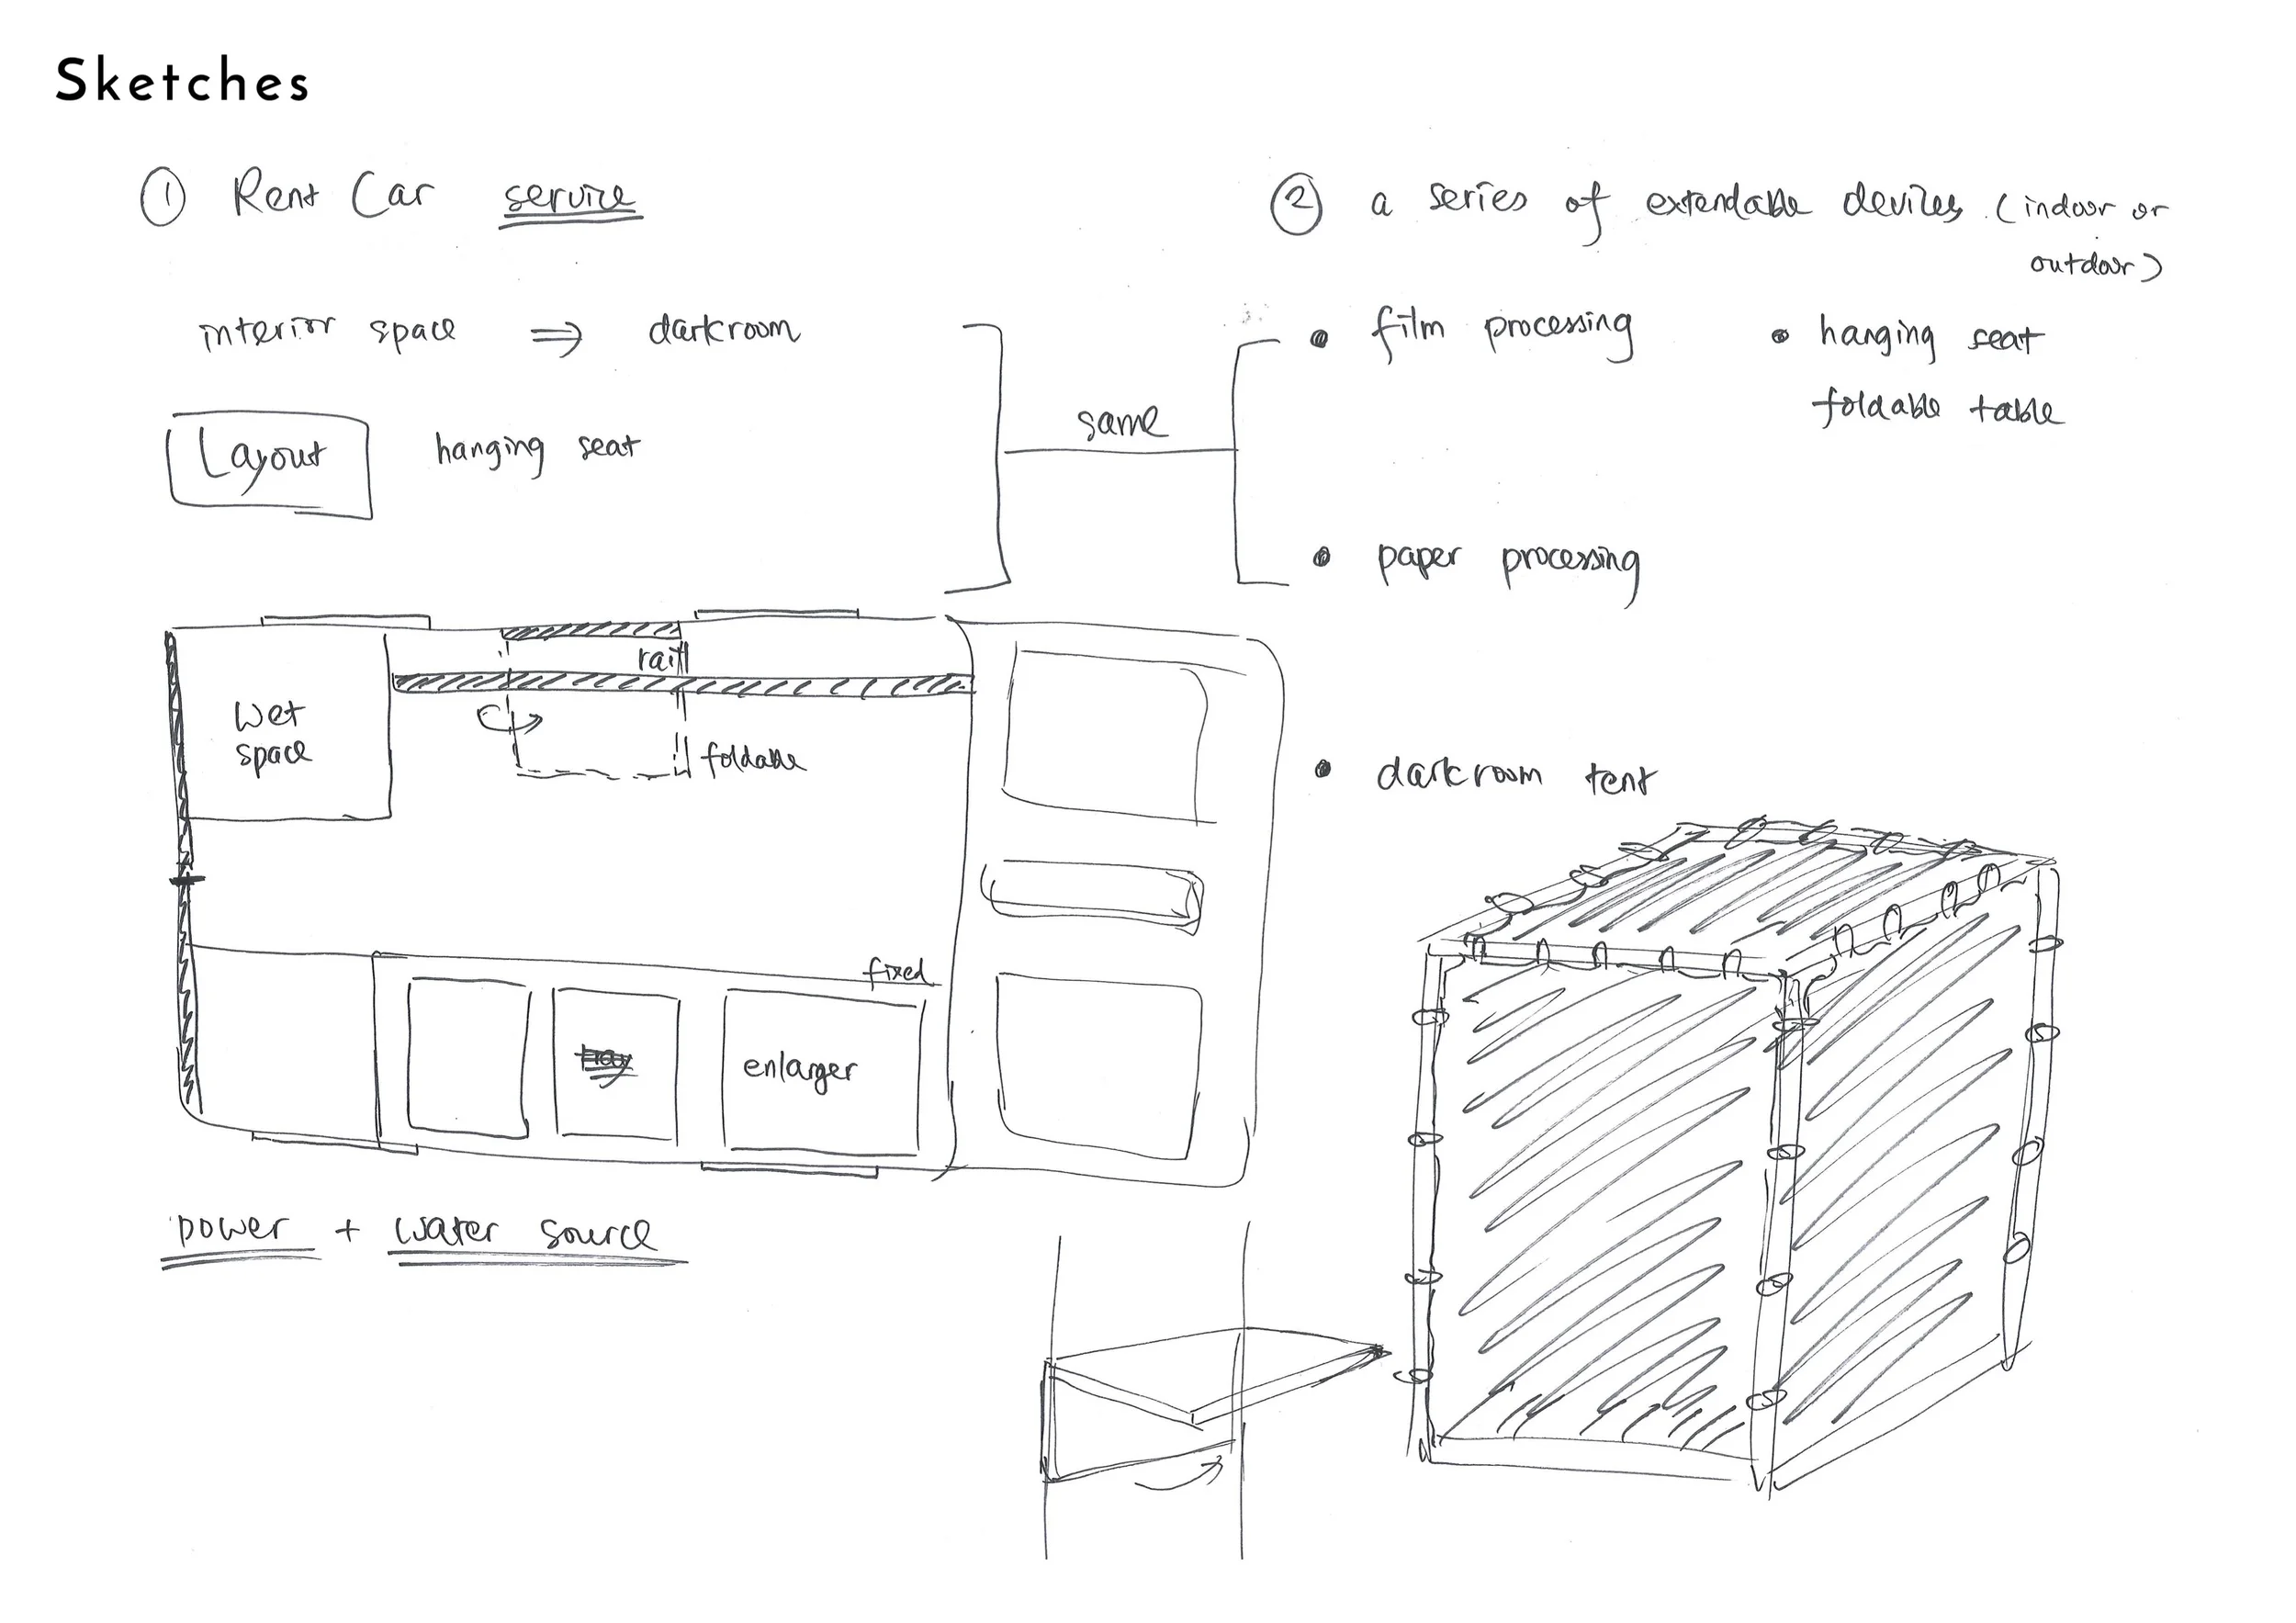 Sketches
① Rent Car service
interior space ⇒ darkroom
Layout
hanging seat
same
② a series of extendable devices (indoor or
outdoor)
• film processing
• hanging seat
foldable table
• paper processing
• darkroom tent
Wet
space
rail
foldable
fixed
tray
enlarger
power + water source